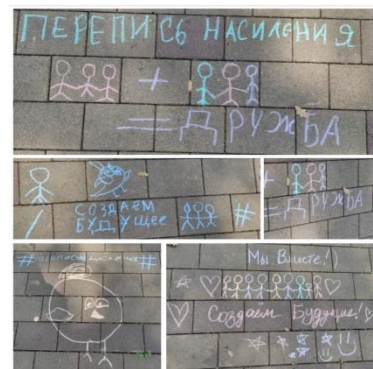 ПЕРЕПИСЬ НАСИЛЕНИЯ
+
= ДРУЖБА
СОЗДАЕМ
БУДУЩЕЕ #
+
= ДРУЖБА
Мы Вместе!)
Создаем Будущие!